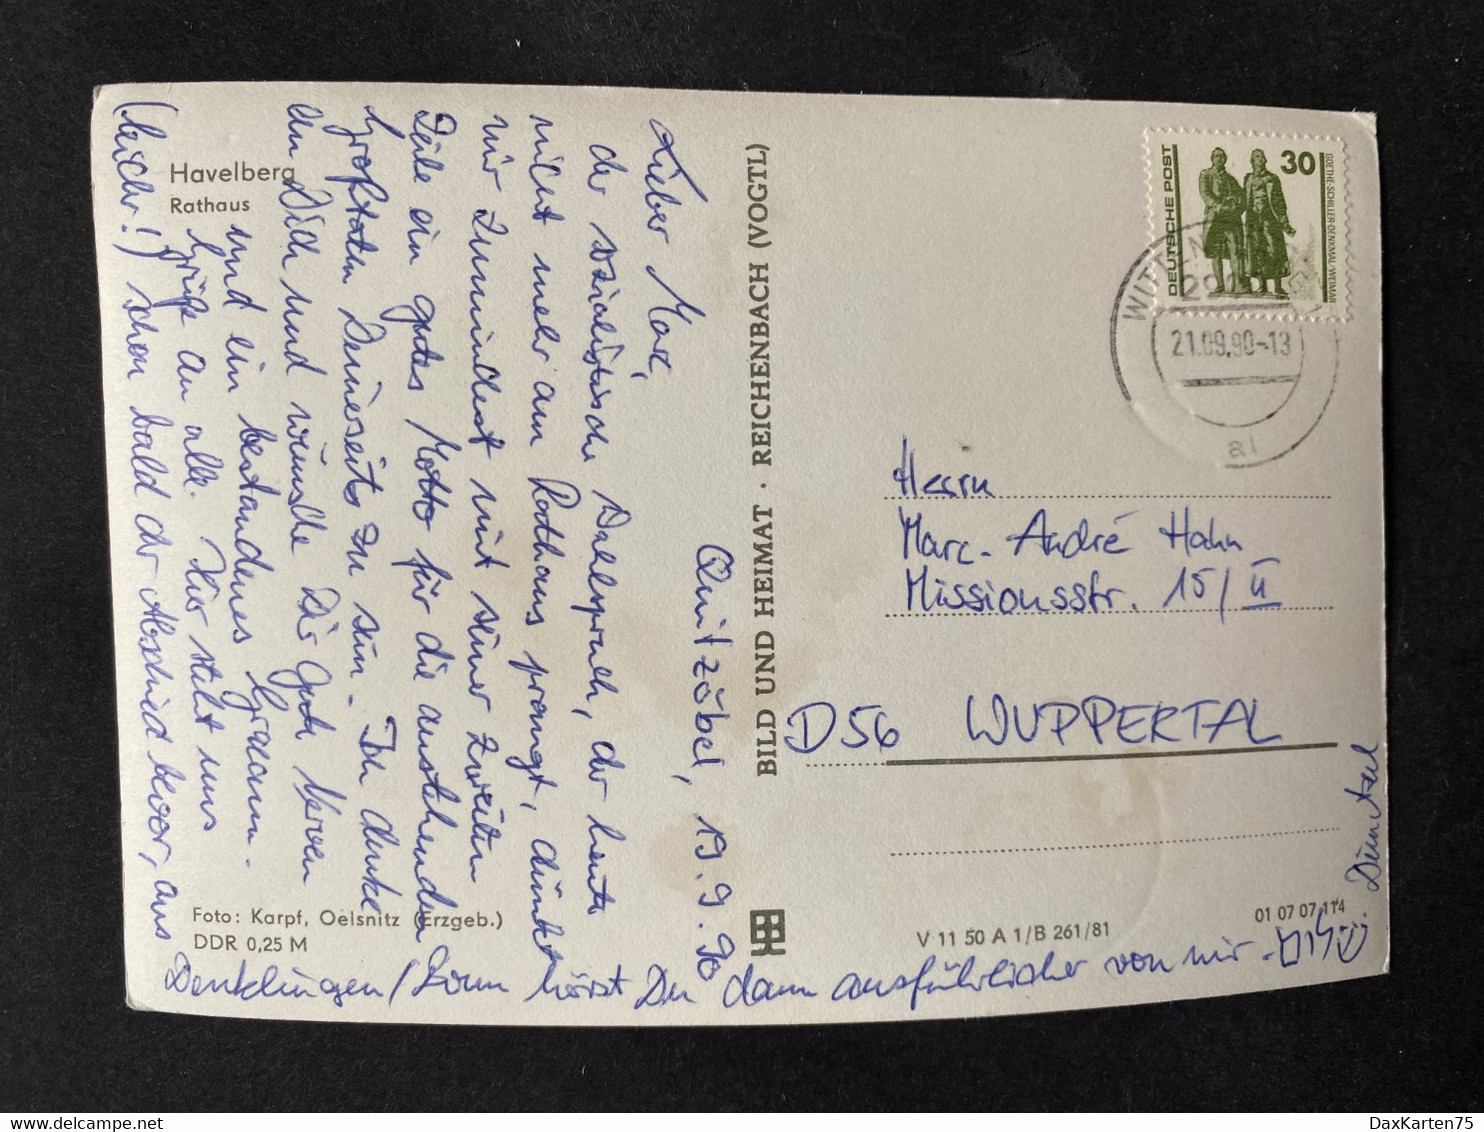 Havelberg
Rathaus
Quitzöbel, 19.9.90
Lieber Marc,
der sozialistische Dahlspruch, der heute
nicht mehr am Rathaus prangt, dünkt
mir zumindest mit seiner zweiten
Teile ein gutes Motto für die anstehenden
Großtaten Deinerseits zu sein. Ich denke
an Dich und wünsche Dir gute Nerven
und ein bestandenes Examen.
Grüße an alle. Hier steht uns
(leider!) schon bald der Abschied bevor, aus
Denklingen/Bonn hörst Du dann ausführlicher von mir.
Foto: Karpf, Oelsnitz (Erzgeb.)
DDR 0,25 M
BILD UND HEIMAT · REICHENBACH (VOGTL)
V 11 50 A 1/B 261/81
01 07 07 114
DEUTSCHE POST
30
GOETHE-SCHILLER-DENKMAL/WEIMAR
21.09.90-13
al
Herrn
Marc-André Hahn
Missionsstr. 15/II
D 56 WUPPERTAL
DaxKarten75